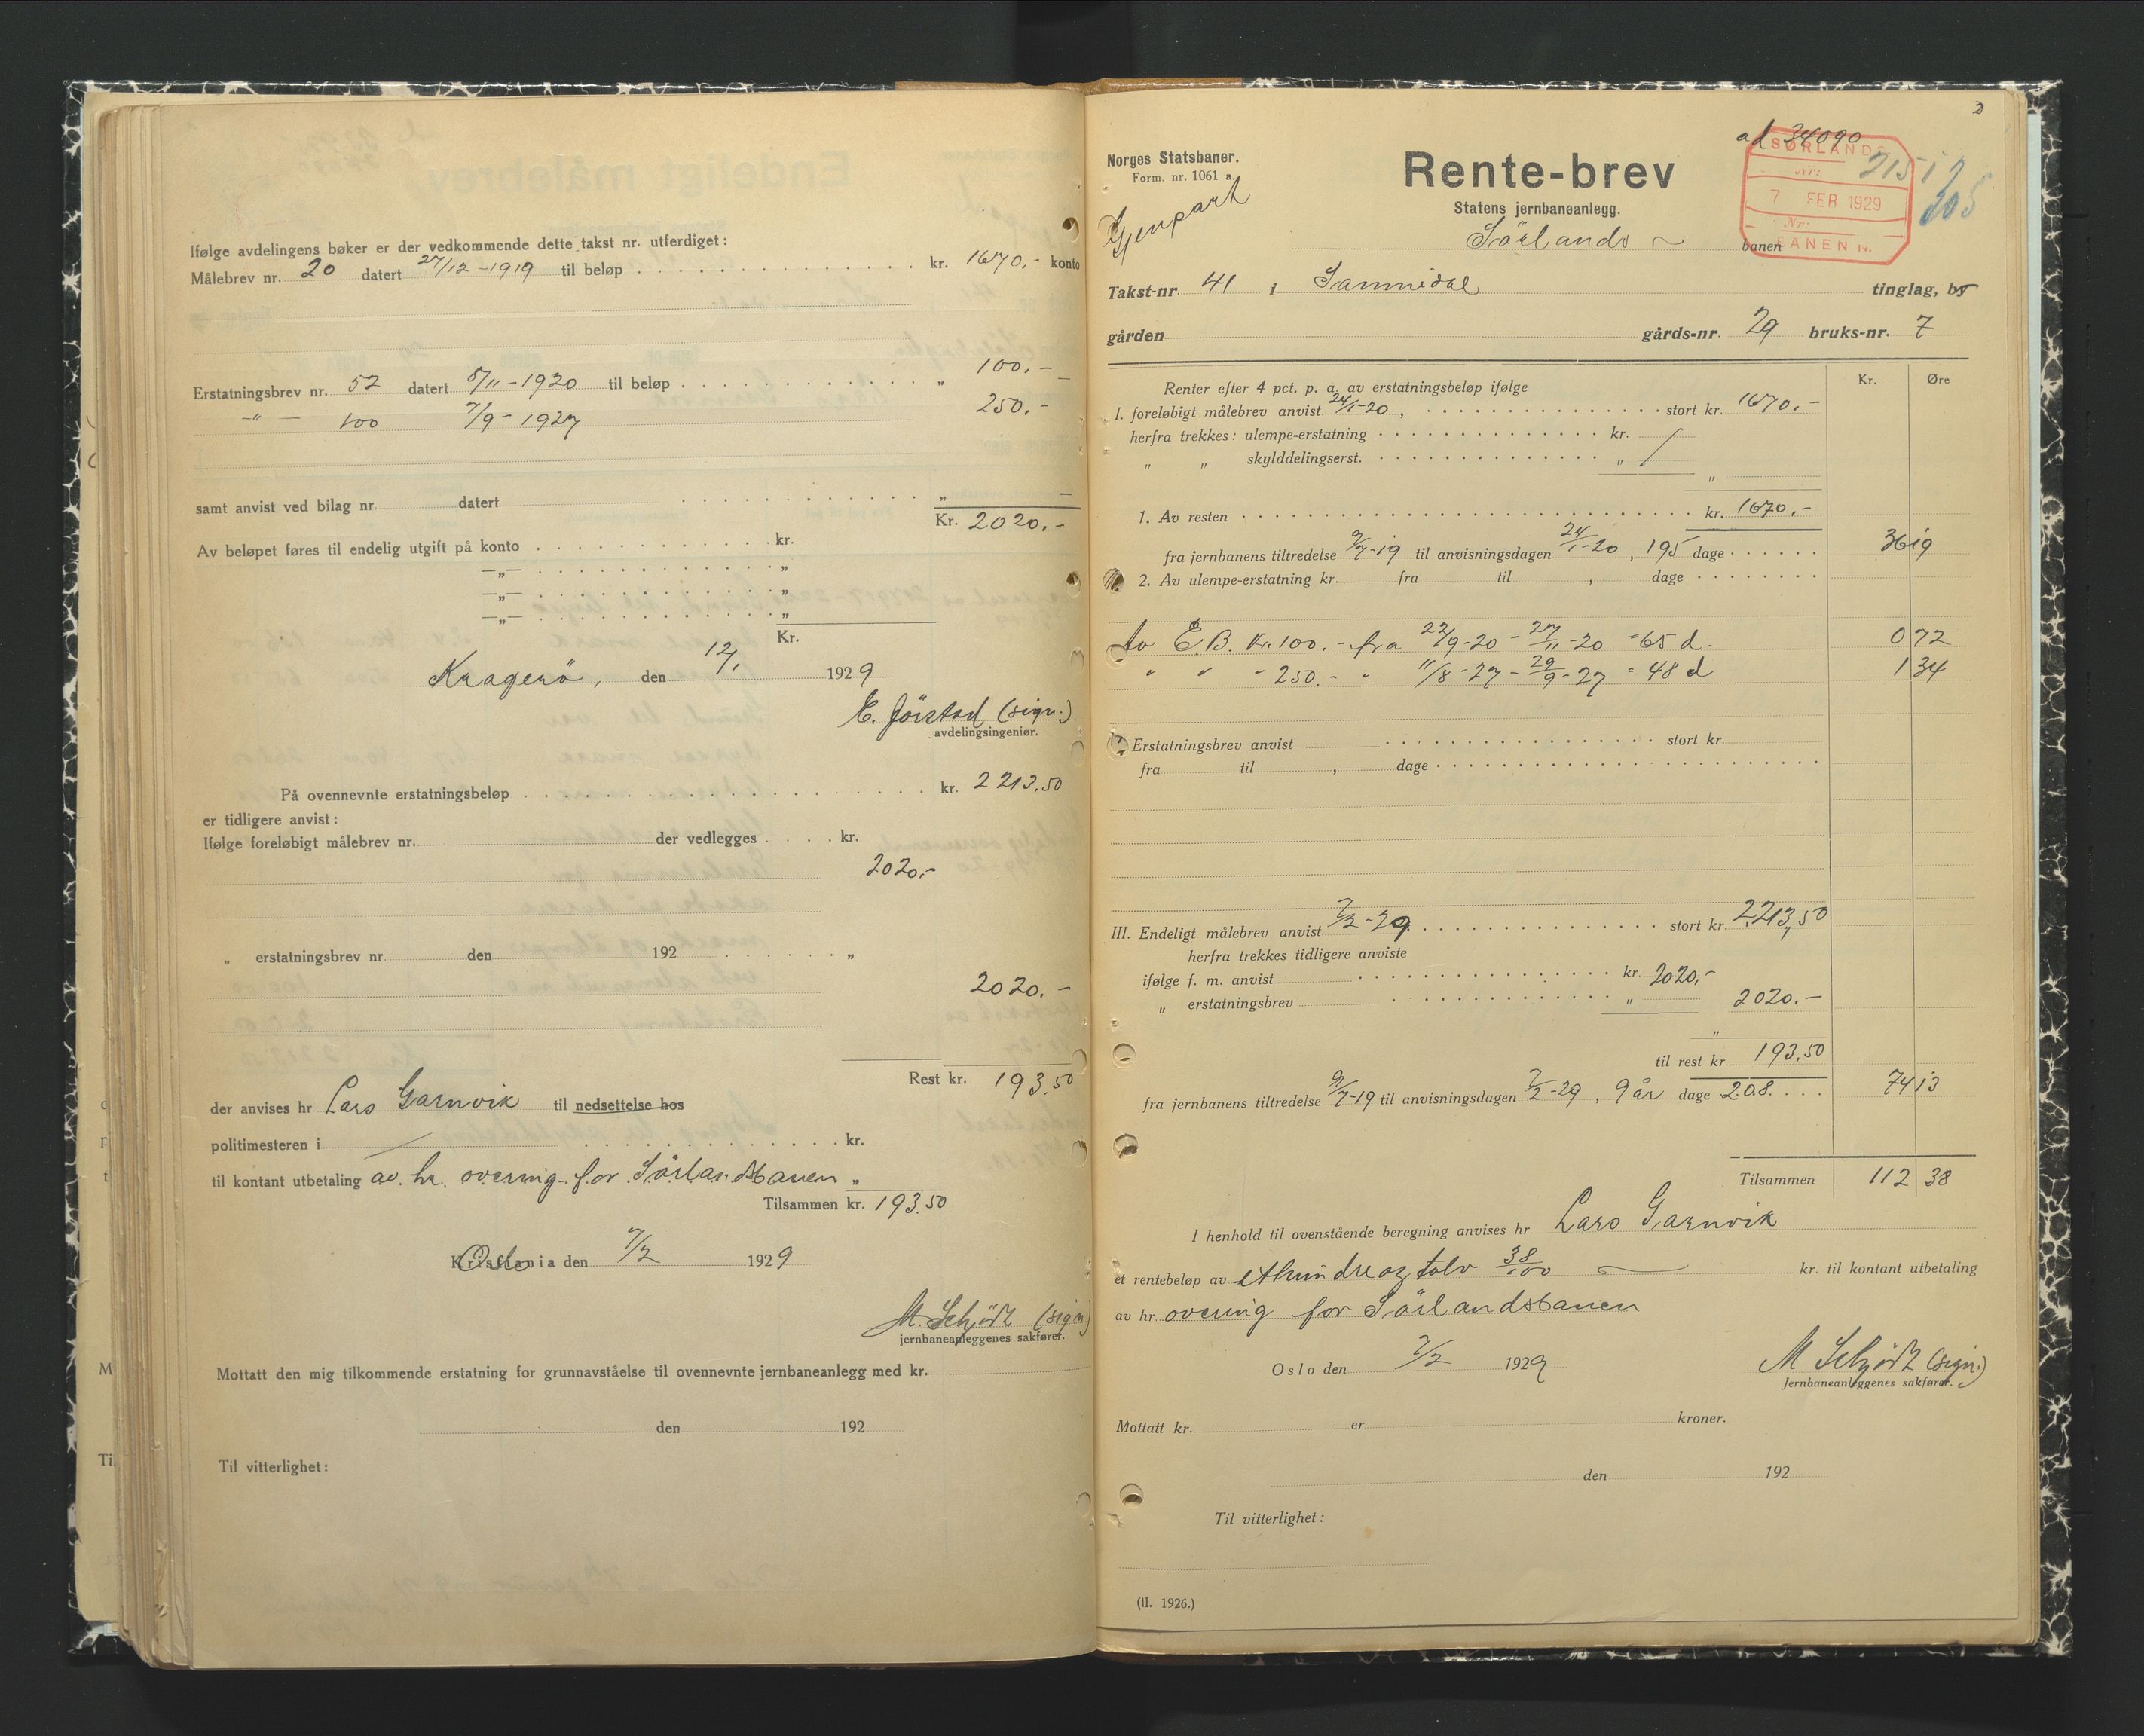 Ifølge avdelingens bøker er der vedkommende dette takst nr. utferdiget:
Målebrev nr. 20 datert 27/12-1919 til beløp kr. 1670.- konto
Erstatningsbrev nr. 52 datert 5/11-1920 til beløp „ 100.-
-„- 100 7/9-1927 250.-
samt anvist ved bilag nr. datert „ -
Kr. 2020.-
Av beløpet føres til endelig utgift på konto kr.
-„- „
-„- „
-„- „
Kr.
Kragerö, den 12/1 1929
E. Jörstad (sign.)
avdelingsingeniør.
På ovennevnte erstatningsbeløp kr. 2213.50
er tidligere anvist:
Ifølge foreløbigt målebrev nr. der vedlegges kr.
2020.-
„ erstatningsbrev nr. den 192 „
2020.-
Rest kr. 193.50
der anvises hr Lars Garnvik til nedsettelse hos
politimesteren i kr.
til kontant utbetaling av hr. overing. for Sörlandsbanen „
Tilsammen kr. 193.50
Kristiania Oslo den 7/2 1929
M. Schjödt (sign)
jernbaneanleggenes sakfører.
Mottatt den mig tilkommende erstatning for grunnavståelse til ovennevnte jernbaneanlegg med kr.
den 192
Til vitterlighet:
2
ad 34090
Norges Statsbaner.
Form. nr. 1061 a.
Gjenpart
Rente-brev
Statens jernbaneanlegg.
Sörlands banen
SØRLANDS
Nr:
7 FEB 1929
Nr:
BANEN N.
205
Takst-nr. 41 i Sannidal tinglag, by
gården gårds-nr. 29 bruks-nr. 7
Kr. Øre
Renter efter 4 pct. p. a. av erstatningsbeløp ifølge
I. foreløbigt målebrev anvist 24/1-20, stort kr. 1670.-
herfra trekkes: ulempe-erstatning kr.
„ „ skylddelingserst. „
„
1. Av resten kr. 1670.-
fra jernbanens tiltredelse 9/7-19 til anvisningsdagen 24/1-20, 195 dage 36 19
2. Av ulempe-erstatning kr. fra til , dage
Av E.B. kr. 100.- fra 22/9-20 - 27/11-20 = 65 d. 0 72
" " - 250.- " 11/8-27 - 29/9-27 = 48 d 1 34
Erstatningsbrev anvist stort kr.
fra til , dage
III. Endeligt målebrev anvist 7/2-29 stort kr. 2213,50
herfra trekkes tidligere anviste
ifølge f. m. anvist kr. 2020,-
„ erstatningsbrev „ 2020.-
„
til rest kr. 193.50
fra jernbanens tiltredelse 9/7-19 til anvisningsdagen 7/2-29, 9 år dage 208. 74 13
Tilsammen 112 38
I henhold til ovenstående beregning anvises hr. Lars Garnvik
et rentebeløp av ethundreogtolv 38/100 kr. til kontant utbetaling
av hr. overing for Sörlandsbanen
Oslo den 7/2 1929
M Schjödt (sign.)
Jernbaneanleggenes sakfører.
Mottatt kr. er kroner.
den 192
Til vitterlighet:
(II. 1926.)